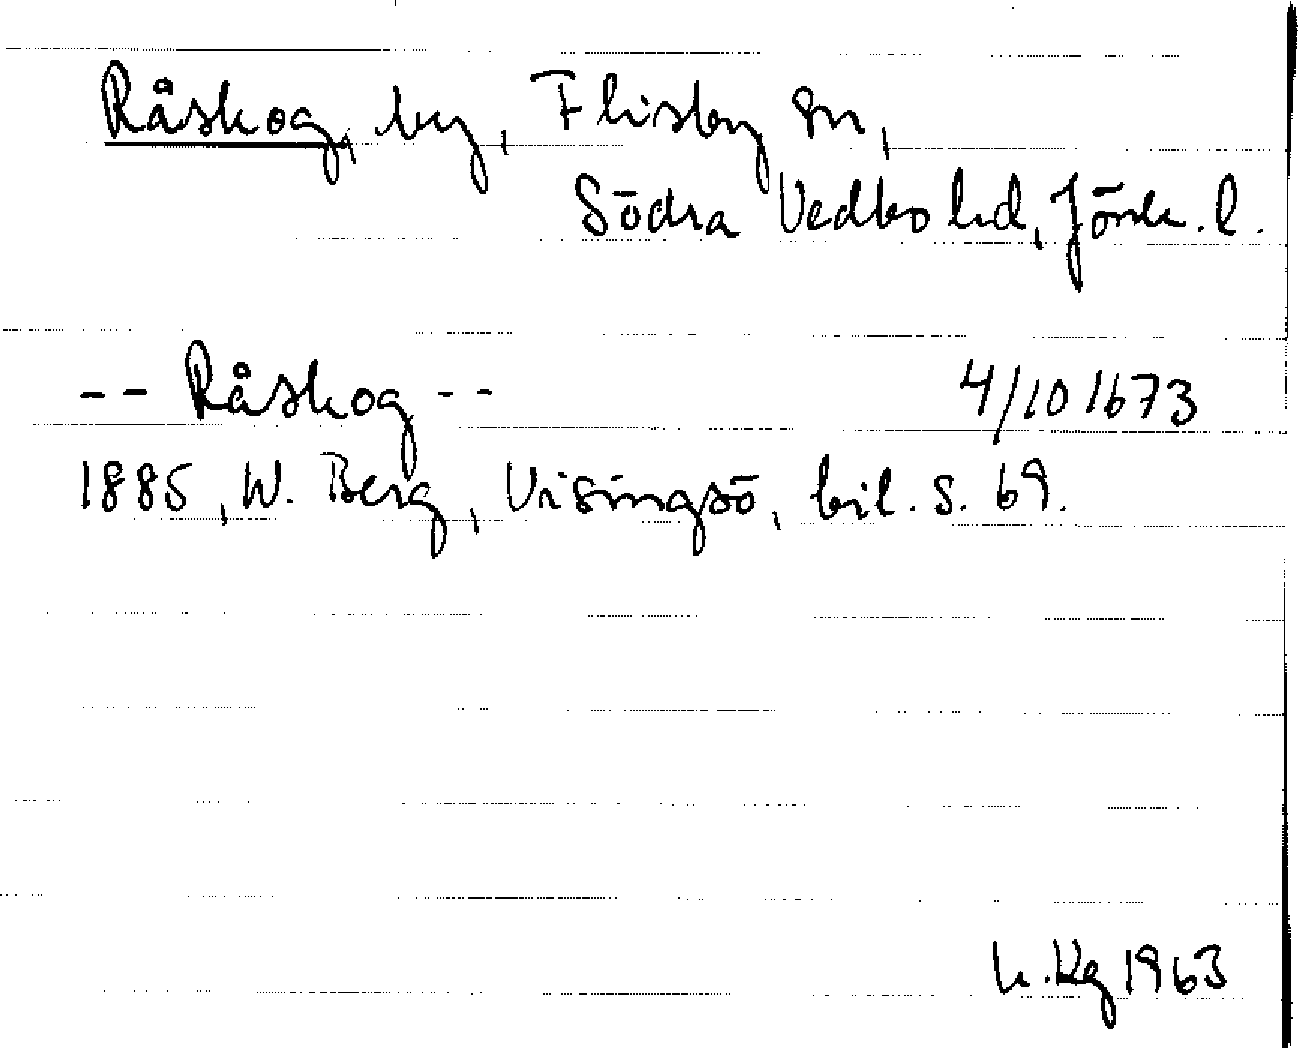 Råskog, by, Flisby sn,
Södra Vedbo hd, Jönk. l.
-- Råskog -- 4/10 1673
1885, W. Berg, Visingsö, bil. s. 69.
1963